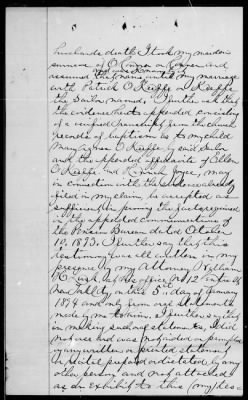 husbands death I took my maiden
surname of O'Connor or Connor and
assumed that name until my marriage
with Patrick O'Keeffe or Keeffe
the Sailor named. I further ask that
the evidence hereto appended consisting
of a verified transcript from the church
records of baptism as to my child
Margaret O'Keeffe by said Sailor
and the appended affidavits of Ellen
O'Keeffe and Hannah Joyce, may
in connection with the evidence already
filed in my claim, be accepted as
sufficient in
in the appended communication of
the Pension Bureau dated October
10, 1893. I further say that this
testimony was all written in my
presence by my Attorney William
at his office, No 12 Centre St
New York City on this 3rd day of January
1894 and only from oral statements
made by me to him. I further say that
in making such oral statements, I did
not use and was not aided or prompted
by any written or printed statement
or recital prepared or dictated by any
other person and not attached
as an exhibit to this my depo-